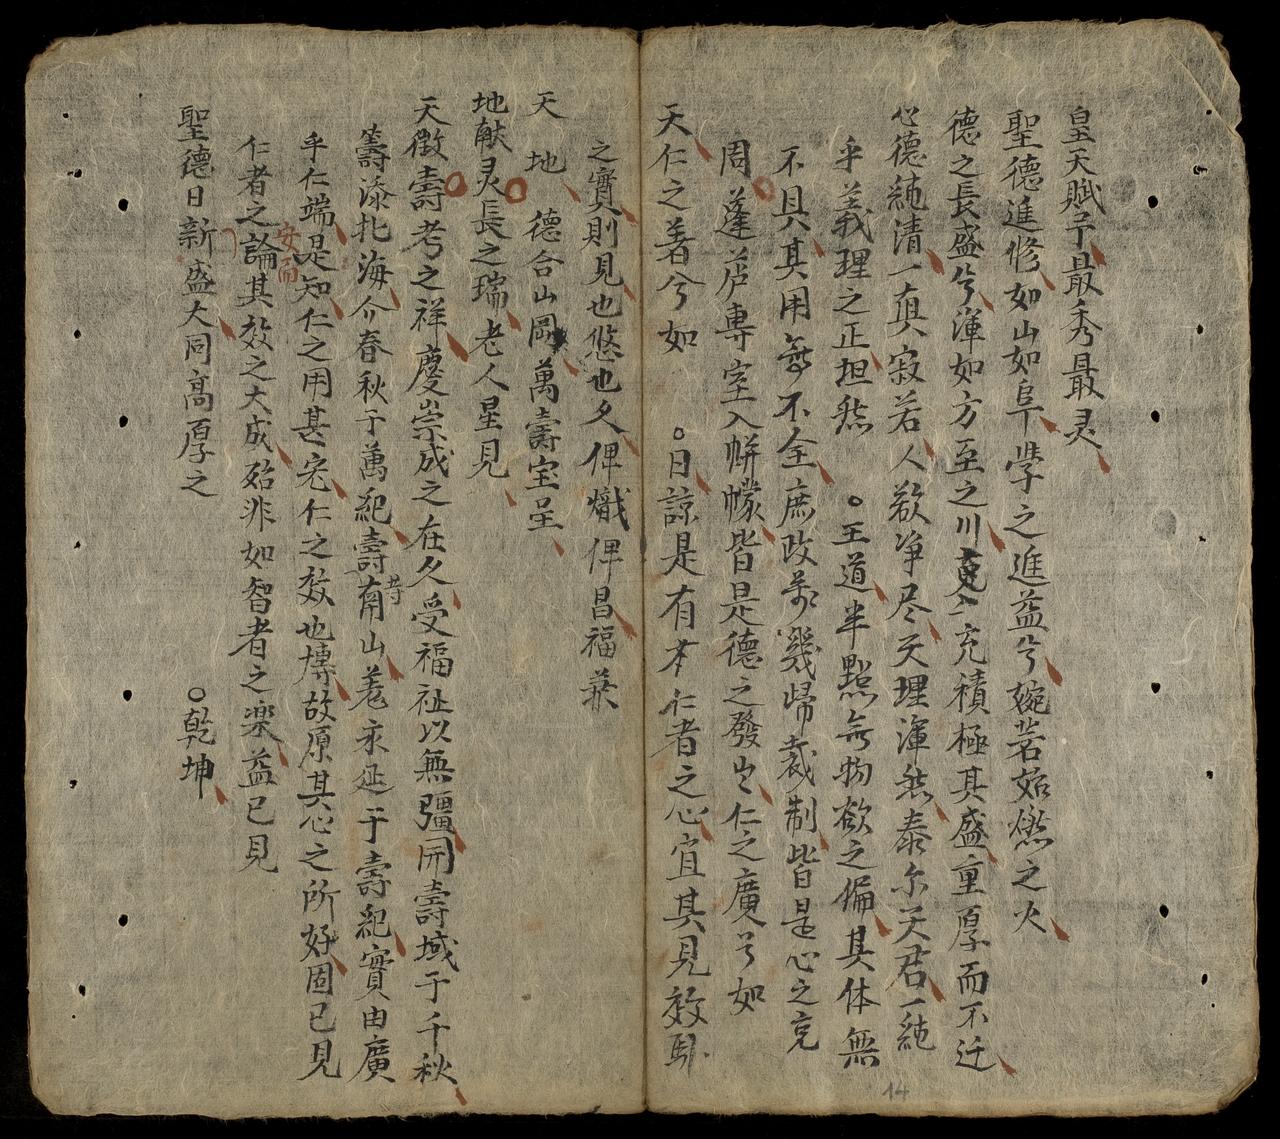 皇天賦予最秀最灵
聖德進修如山如阜學之進益兮婉若始燃之火
德之長盛兮渾如方至之川充積極其盛重厚而不迁
心德純清一真寂若人欲净尽天理渾然泰尔天君一純
乎義理之正担然 王道半點無物欲之偏具体無
不具其用無不全庶政萬幾歸裁制皆是心之充
周蓬芦專室入帡幪皆是德之發出仁之廣兮如
天仁之著兮如 日諒是有本仁者之心宜其見效
之實則見也悠也久俾熾俾昌福兼
天 地 德合山岡萬壽宝呈
地献灵長之瑞老人星見
天徵壽考之祥慶崇成之在久受福祉以無彊開壽域于千秋
籌添北海介春秋于萬紀壽等南山羕永延于壽紀實由廣
乎仁端是知仁之用甚宏仁之效也博故原其心之所好固已見
安而
仁者之論其效之大成殆非如智者之楽益已見
聖德日新盛大同高厚之 乾坤
14